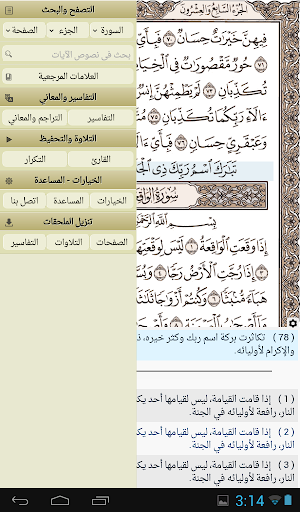 التصفح والبحث
السورة
الجزء
الصفحة
بحث في نصوص الآيات
العلامات المرجعية
التفاسير والمعاني
التفاسير
التراجم والمعاني
التلاوة والتحفيظ
القارئ
التكرار
الخيارات - المساعدة
الخيارات
المساعدة
اتصل بنا
تنزيل الملحقات
الصفحات
التلاوات
التفاسير
الجزء السابع والعشرون
فيهن خيرت حسان ٧٠ فبأي
٧١ حور مقصورت في الخيام
تكذبان ٧٣ لم يطمثهن إنس
ءالاء ربكما تكذبان
وعبقري حسان ٧٦ فبأي
تبرك اسم ربك ذي الجل
سورة الواقعة
بسم الله الرحمن
إذا وقعت الواقعة ١ ليس لوقعتها
٣ إذا رجت الأرض رجا
هباء منبثا ٦ وكنتم أزوجا ثلثة
( 78 ) تكاثرت بركة اسم ربك وكثر خيره،
والإكرام لأوليائه.
( 1 ) إذا قامت القيامة، ليس لقيامها أحد يكذ
النار، رافعة لأوليائه في الجنة.
( 2 ) إذا قامت القيامة، ليس لقيامها أحد يكذ
النار، رافعة لأوليائه في الجنة.
( 3 ) إذا قامت القيامة، ليس لقيامها أحد يكذ
النار، رافعة لأوليائه في الجنة.
3:14